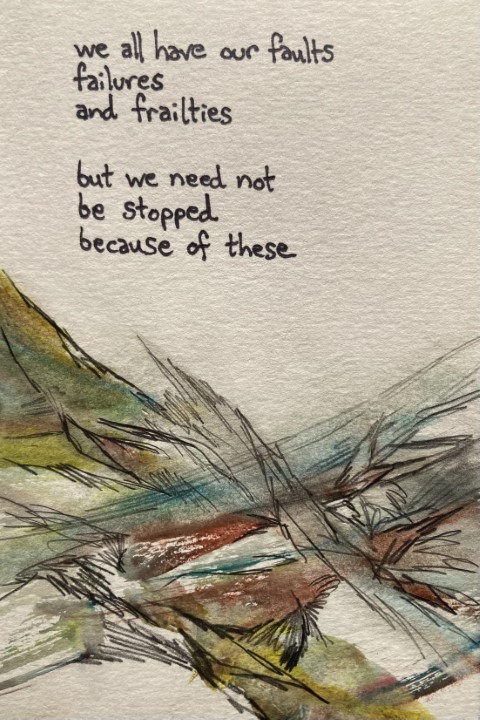 we all have our faults
failures
and frailties
but we need not
be stopped
because of these